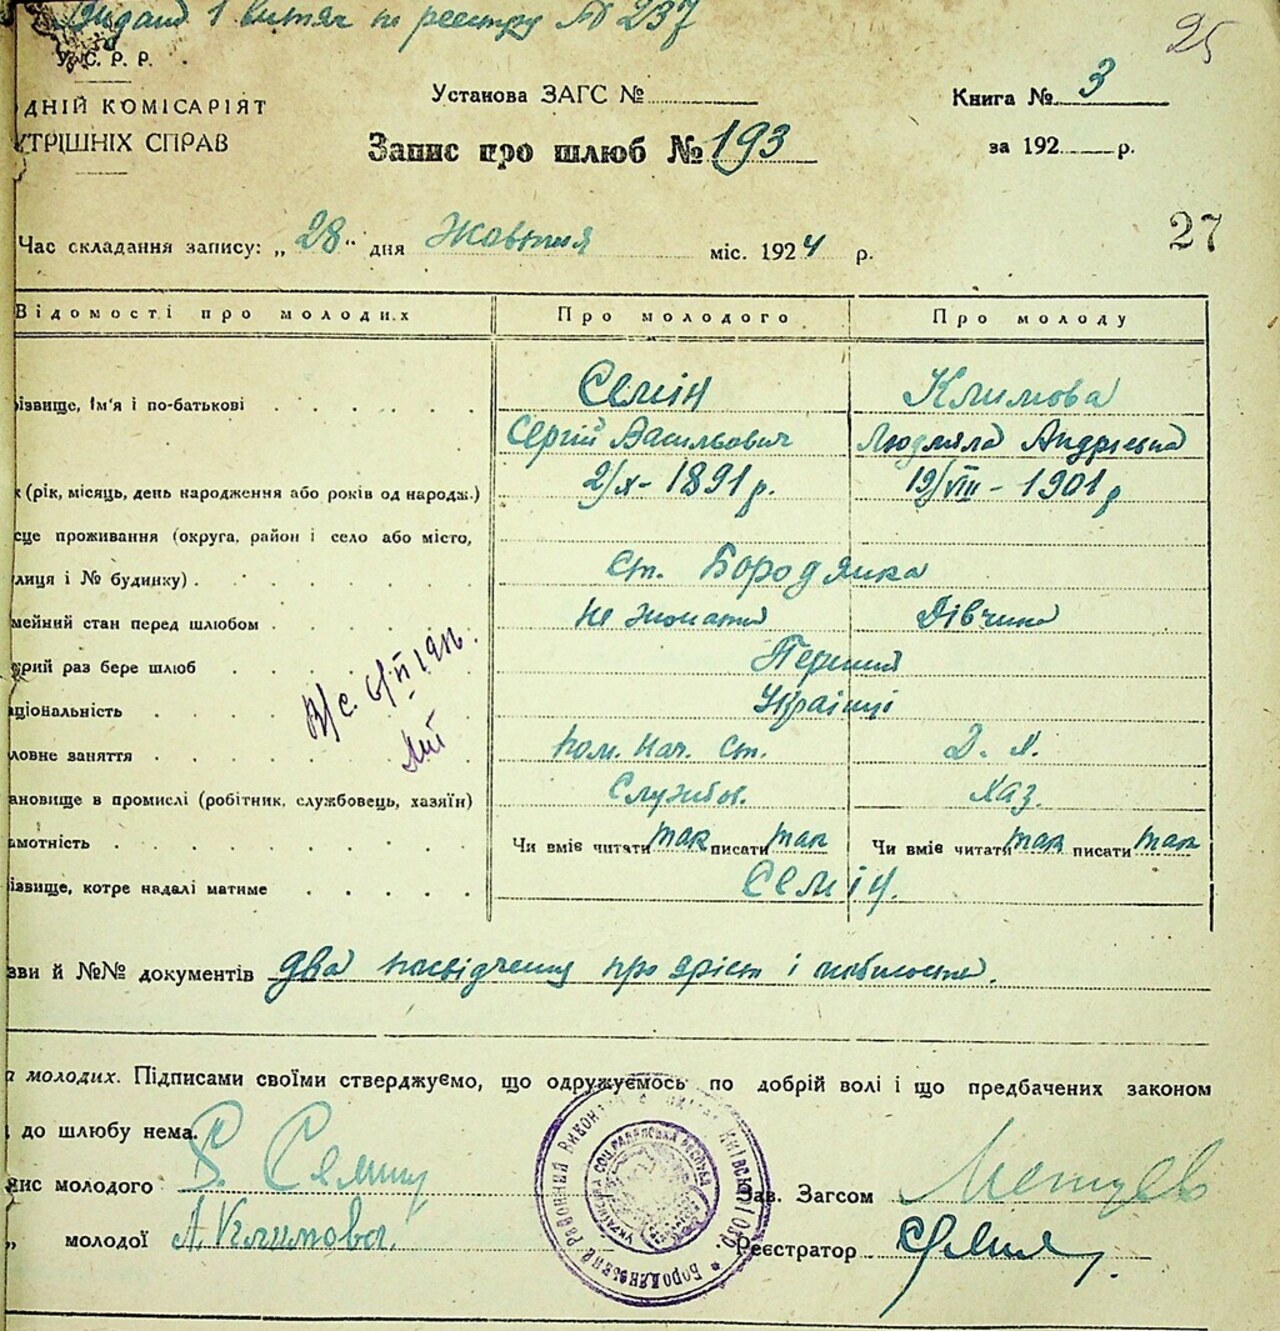 Видано 1 витяг по реєстру № 237
25
У.С.Р.Р.
ДНІЙ КОМІСАРІЯТ
ТРІШНІХ СПРАВ
Установа ЗАГС №
Книга № 3
Запис про шлюб № 193
за 192 р.
27
Час складання запису: „28" дня Жовтня міс. 1924 р.
Відомості про молодих Про молодого Про молоду
ізвище, Ім'я і по-батькові Семін Климова
Сергій Васильович Людмила Андріевна
(рік, місяць, день народження або років од народж.) 2/X - 1891 р. 19/VIII - 1901 р
сце проживання (округа, район і село або місто,
лиця і № будинку) ст. Бородянка
мейний стан перед шлюбом Не жонатий Дівчина
рий раз бере шлюб Перший
ціональність Українці
В/с. 6/II 1946.
ловне заняття пом. нач. ст. Д. Х.
ановище в промислі (робітник, службовець, хазяїн) Службов. хаз.
амотність Чи вміє читати так писати так Чи вміє читати так писати так
ізвище, котре надалі матиме Семін.
зви й №№ документів два посвідчення про
молодих. Підписами своїми стверджуємо, що одружуємось по добрій волі і що предбачених законом
до шлюбу нема.
ис молодого С. Семин
Зав. Загсом
„ молодої Л. Климова.
Реєстратор
Бородянський Районний Виконавчий Київської Окр.
Українська Соц. Радянська Республ.